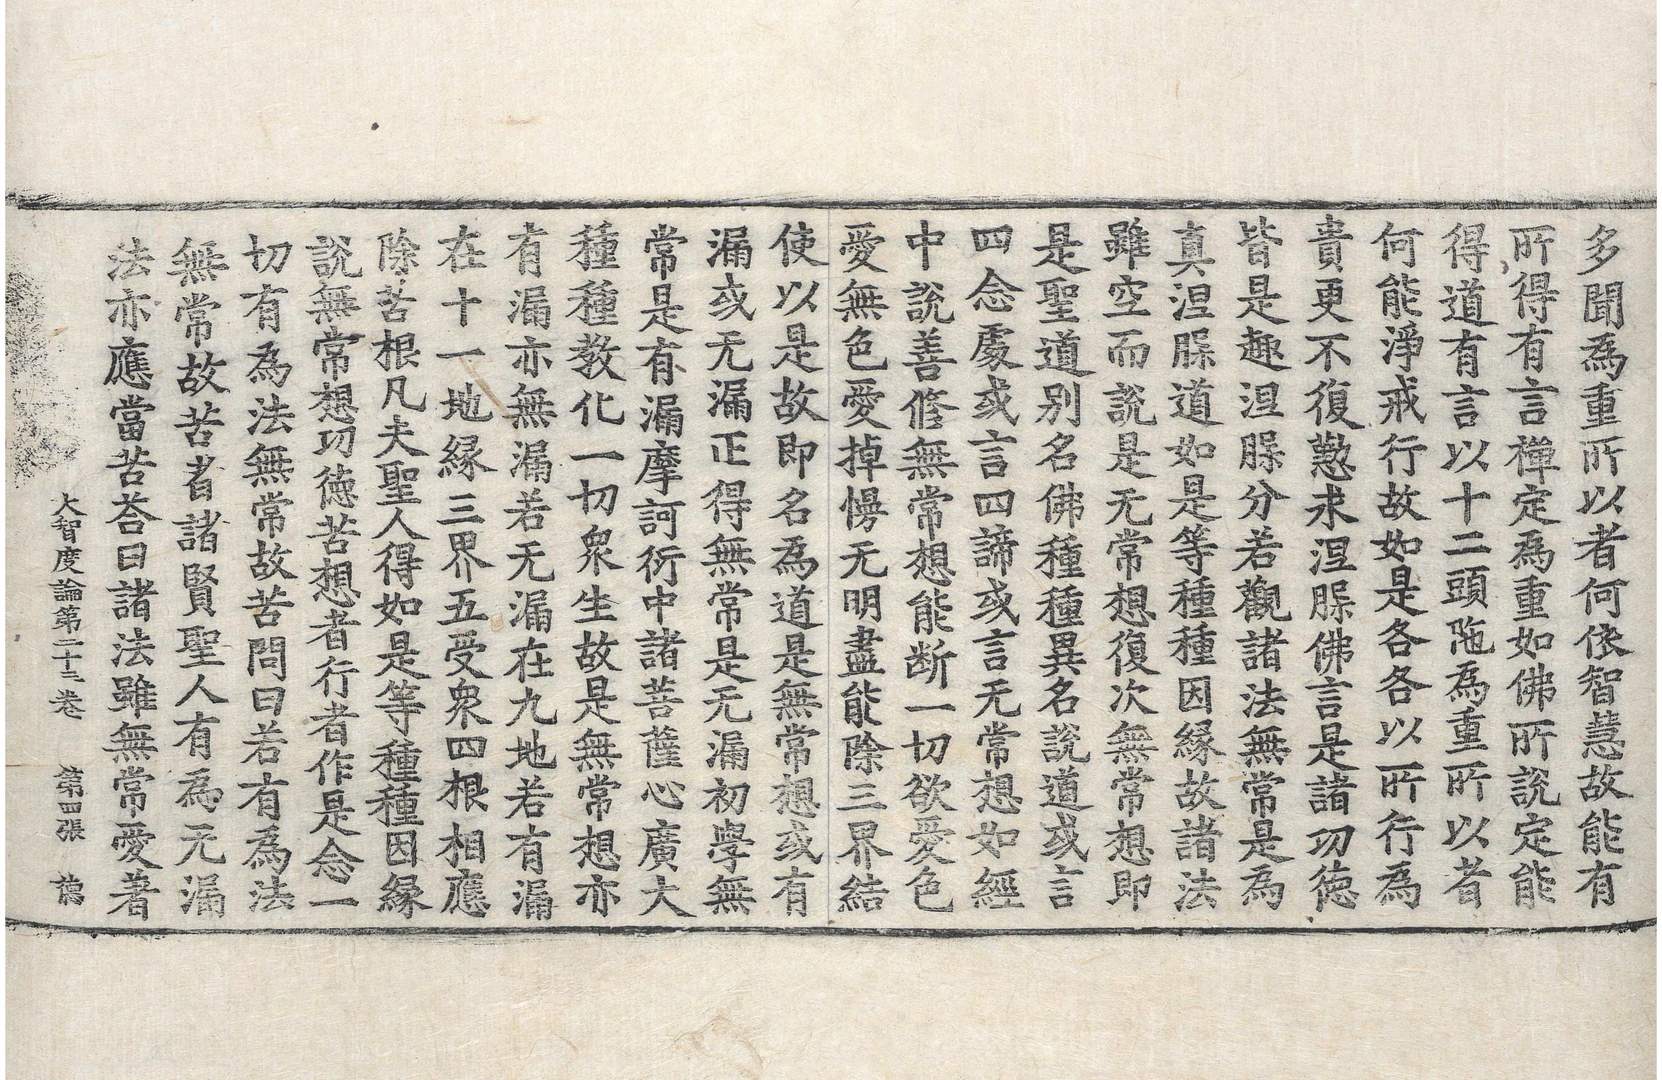 多聞為重所以者何依智慧故能有
所得有言禪定為重如佛所說定能
得道有言以十二頭陁為重所以者
何能淨戒行故如是各各以所行為
貴更不復懃求涅槃佛言是諸功德
皆是趣涅槃分若觀諸法無常是為
真涅槃道如是等種種因緣故諸法
雖空而說是无常想復次無常想即
是聖道別名佛種種異名說道或言
四念處或言四諦或言无常想如經
中說善修無常想能断一切欲愛色
愛無色愛掉慢无明盡能除三界結
使以是故即名為道是無常想或有
漏或无漏正得無常是无漏初學無
常是有漏摩訶衍中諸菩薩心廣大
種種教化一切衆生故是無常想亦
有漏亦無漏若无漏在九地若有漏
在十一地緣三界五受衆四根相應
除苦根凡夫聖人得如是等種種因緣
說無常想功德苦想者行者作是念一
切有為法無常故苦問曰若有為法
無常故苦者諸賢聖人有為无漏
法亦應當苦荅曰諸法雖無常愛著
大智度論第二十三卷 第四張 德